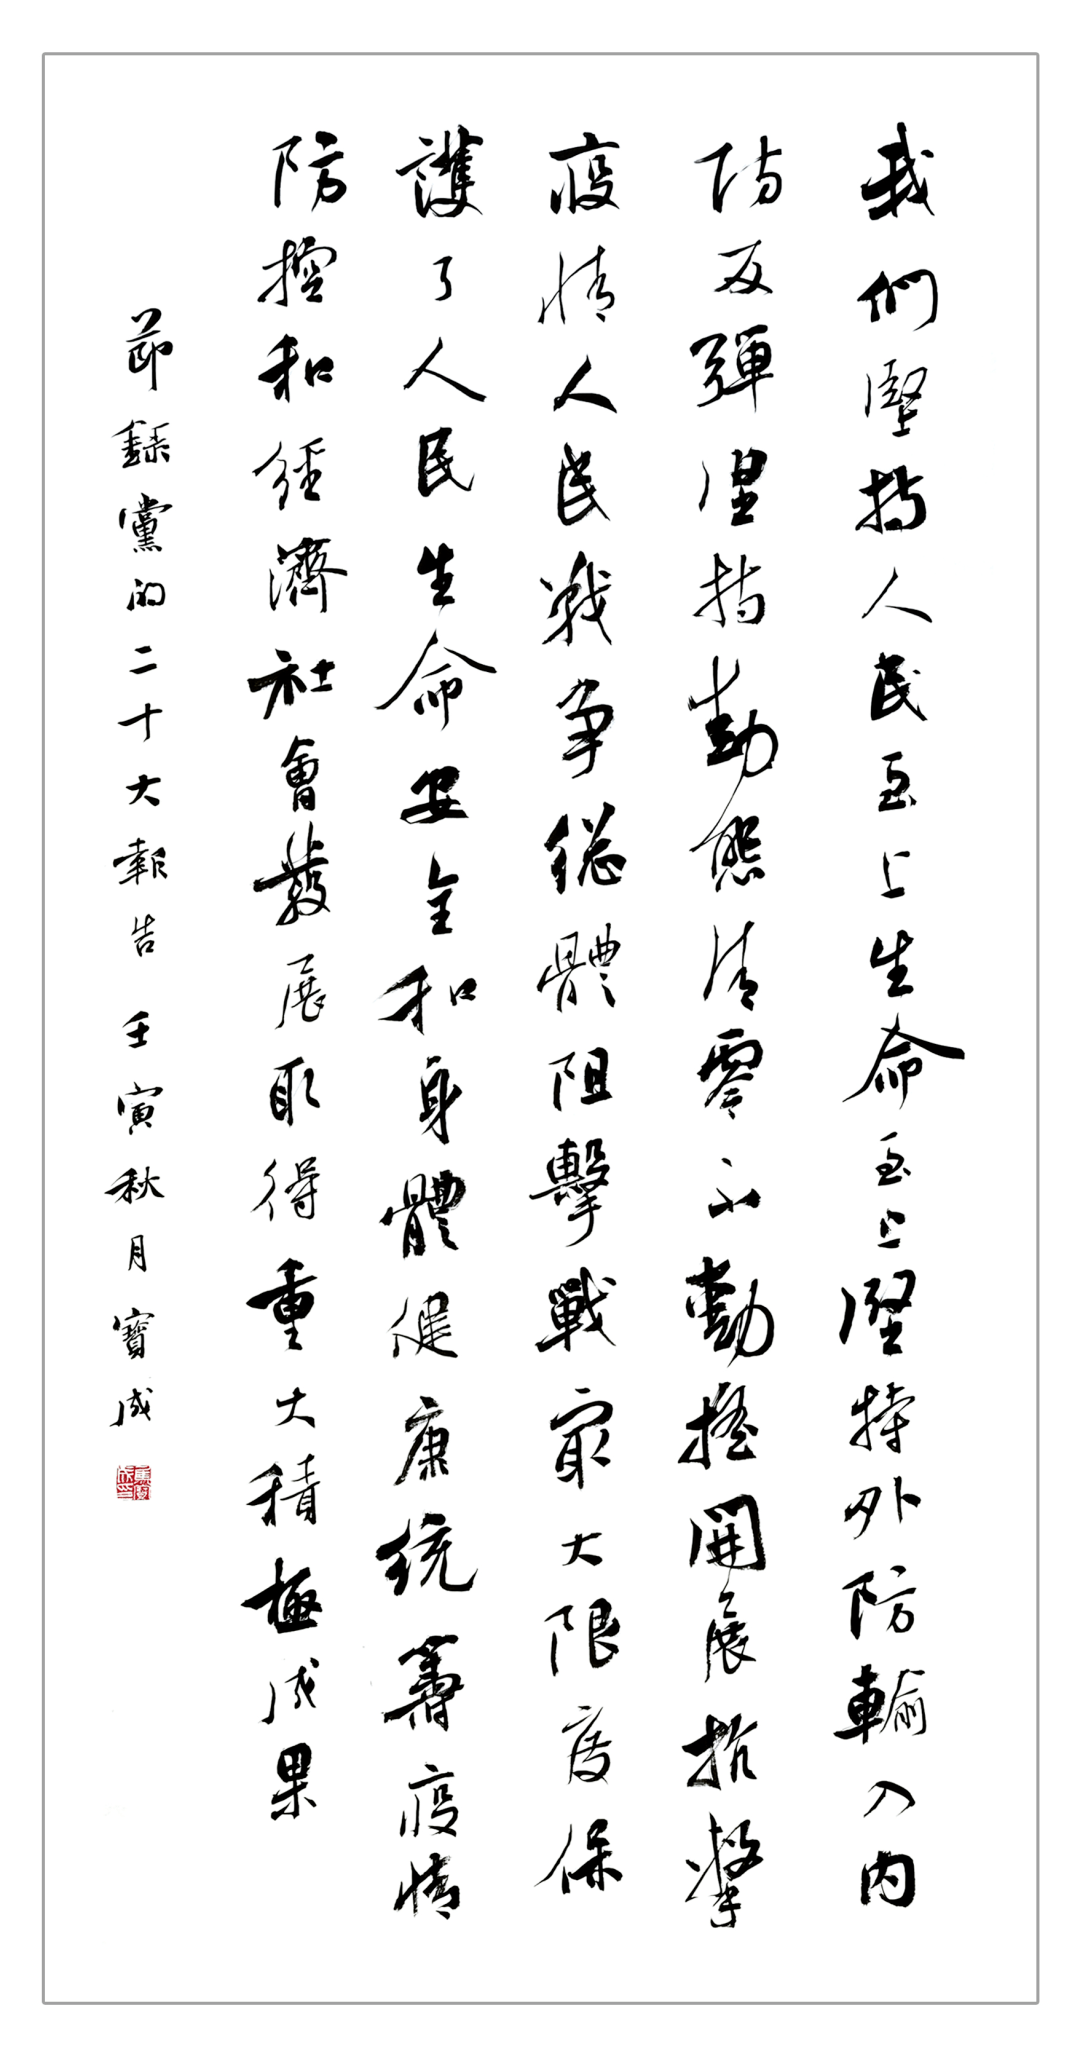 我們堅持人民至上生命至上堅持外防輸入內
防反彈堅持動態清零不動搖開展抗擊
疫情人民戰争總體阻擊戰最大限度保
護了人民生命安全和身體健康統籌疫情
防控和經濟社會發展取得重大積極成果
節錄黨的二十大報告 壬寅秋月寶成